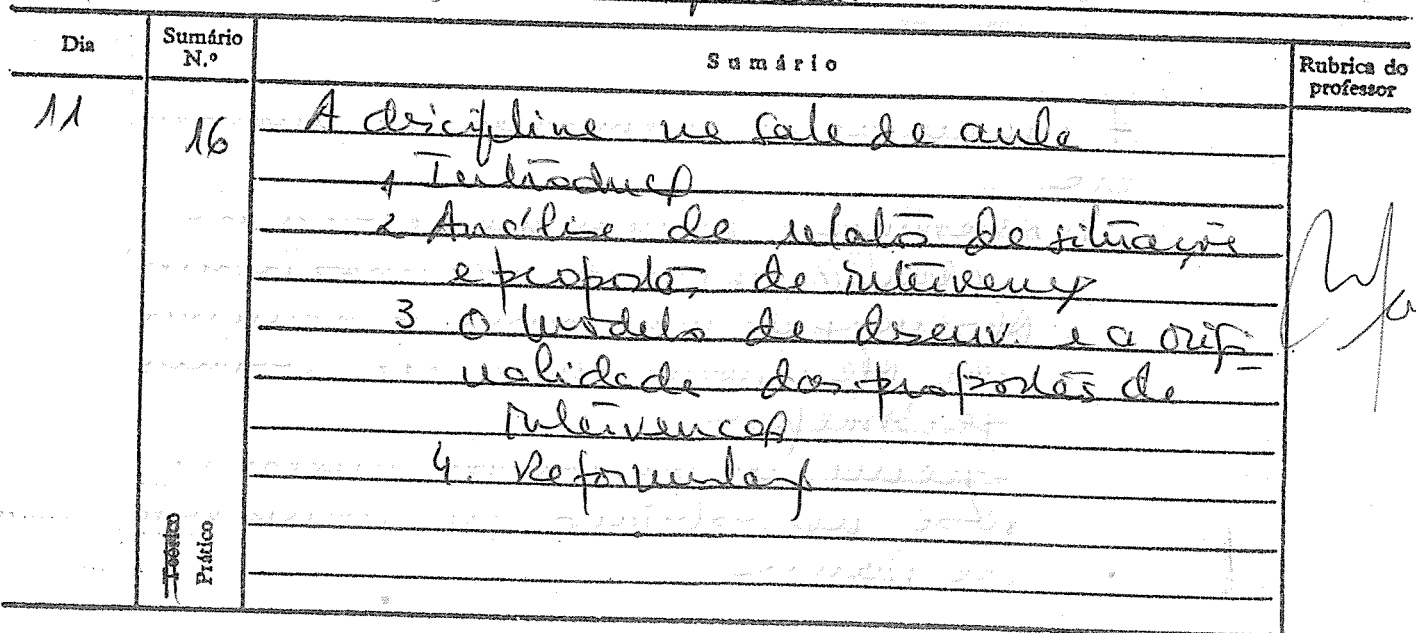 Dia
Sumário N.º
Sumário
Rubrica do professor
11
16
A disciplina na sala de aula
1 Introdução
2 Análise de relatos de situações
e propostas de intervenção
3 O modelo de desenv. e a origi-
nalidade das propostas de
intervenção
4. Reformulação
Teórico
Prático